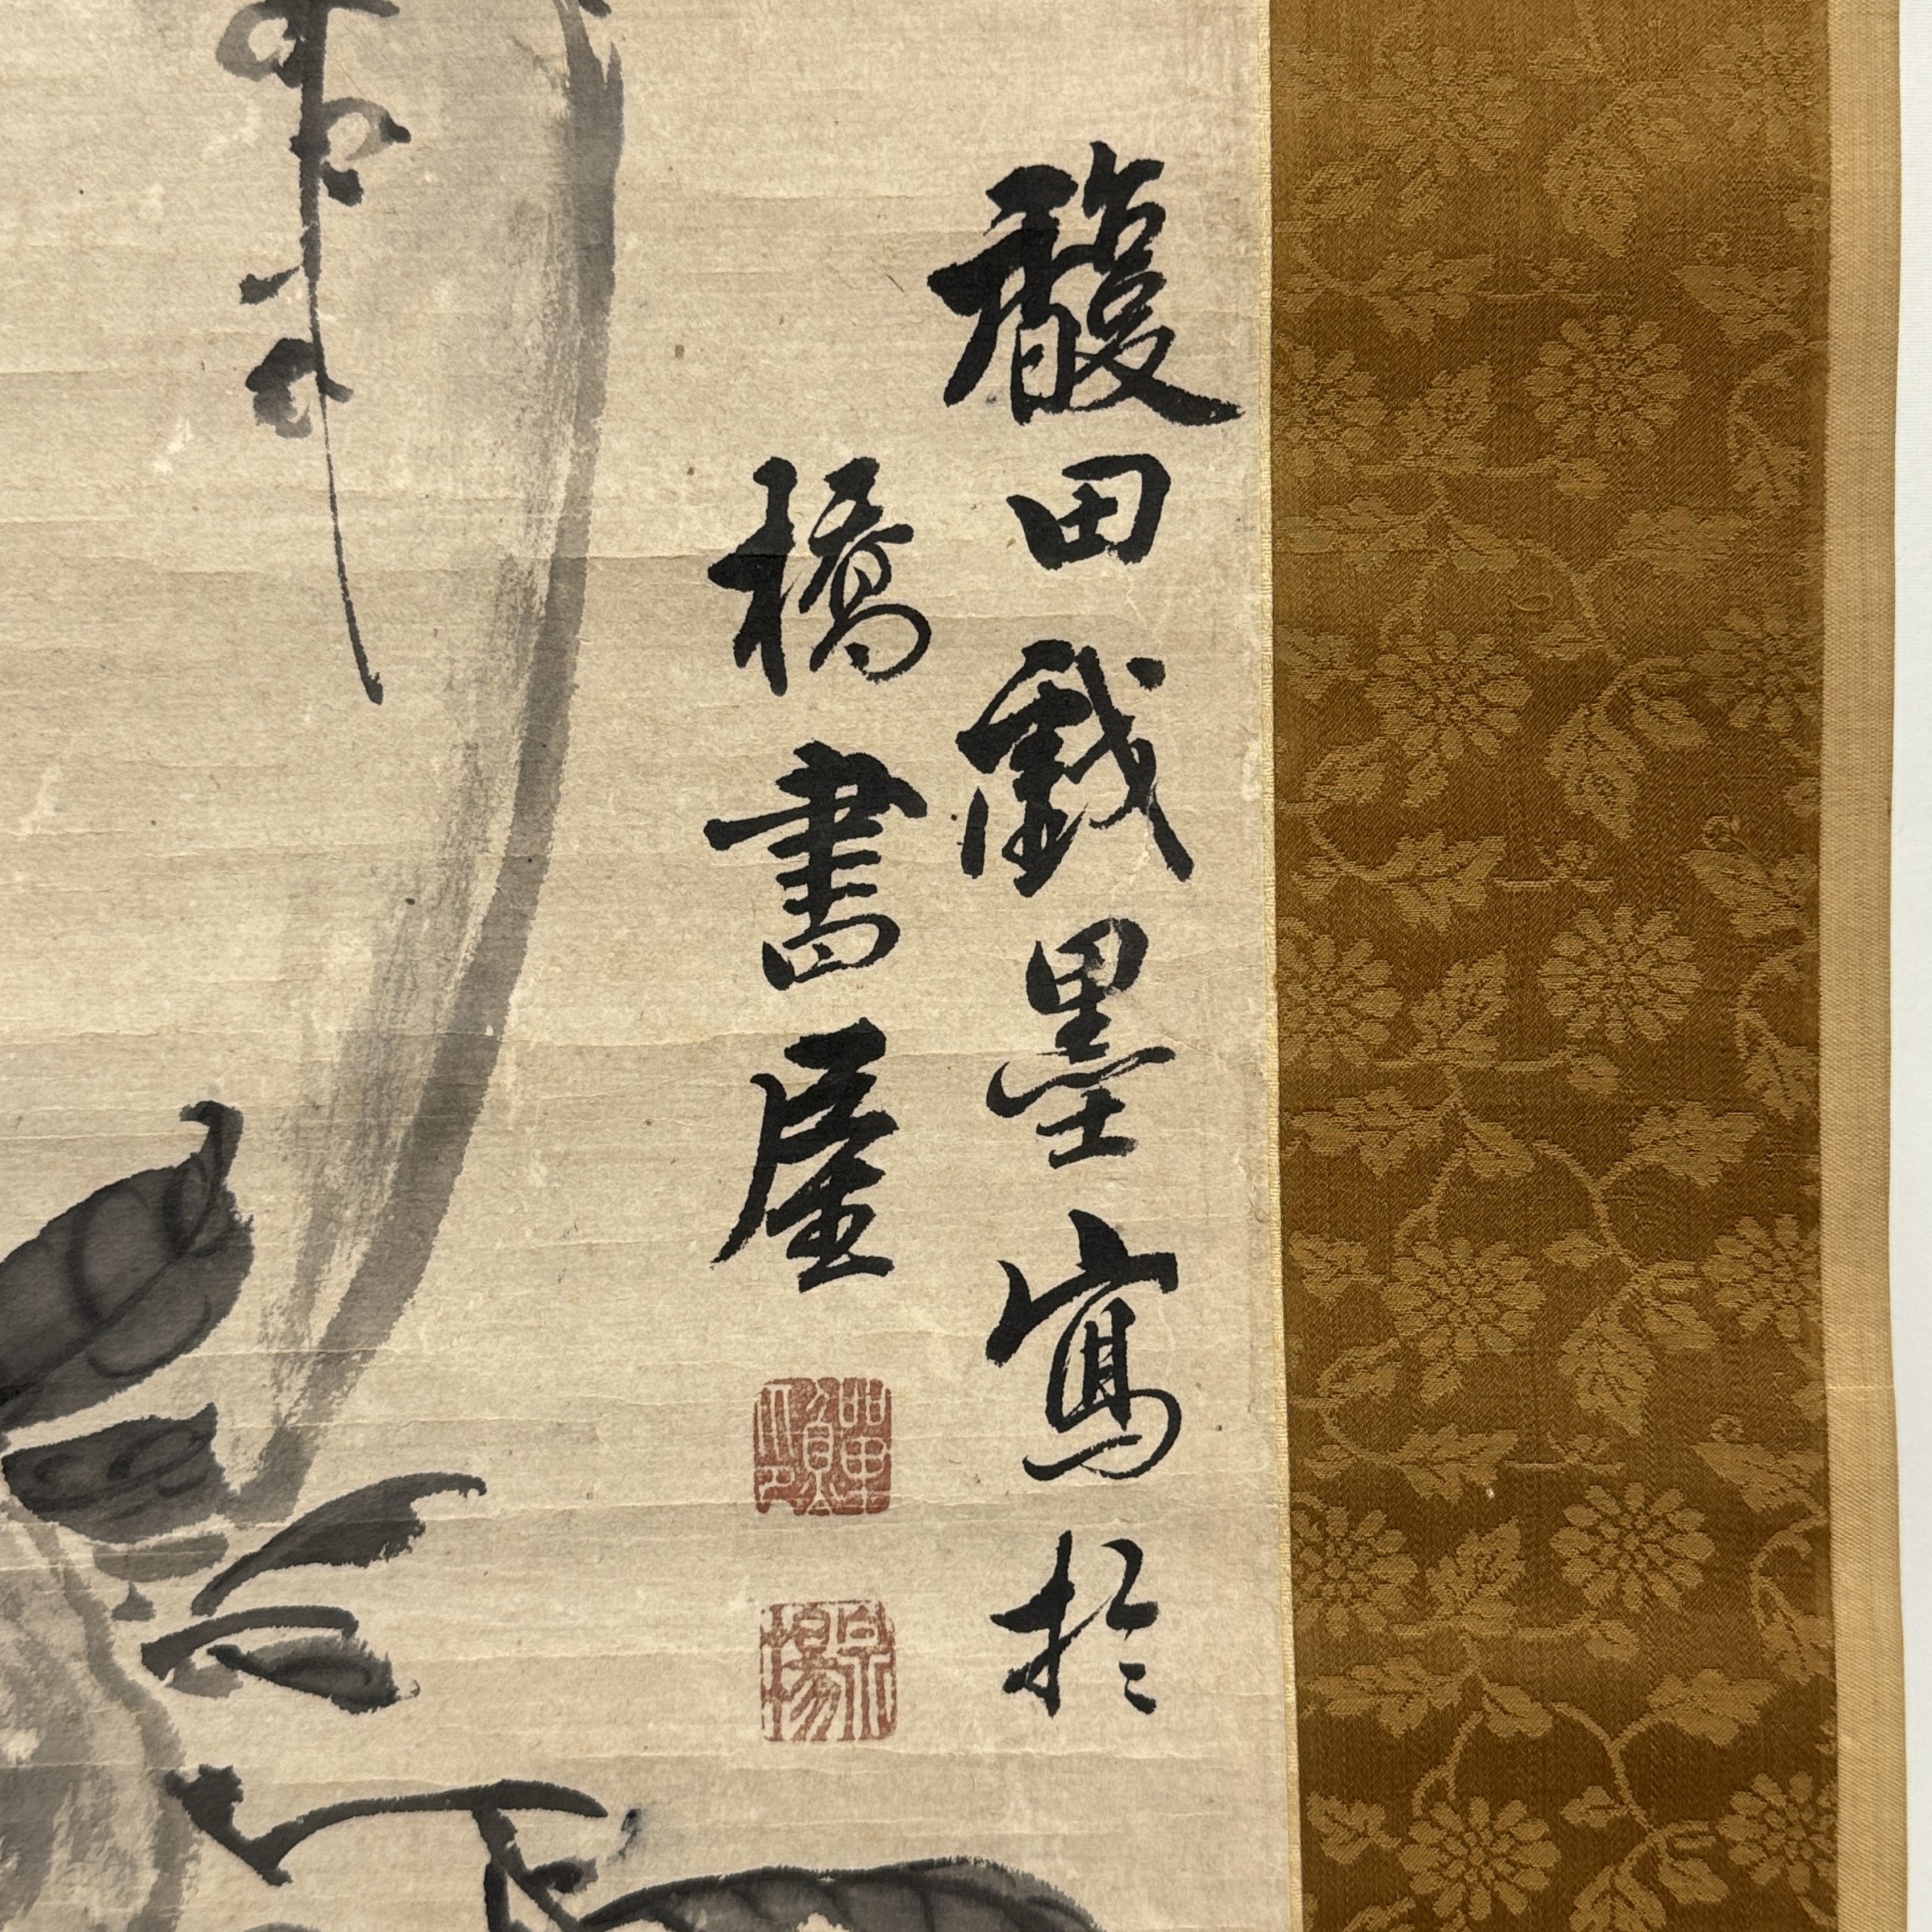 馥田戲墨寫於
橋書屋